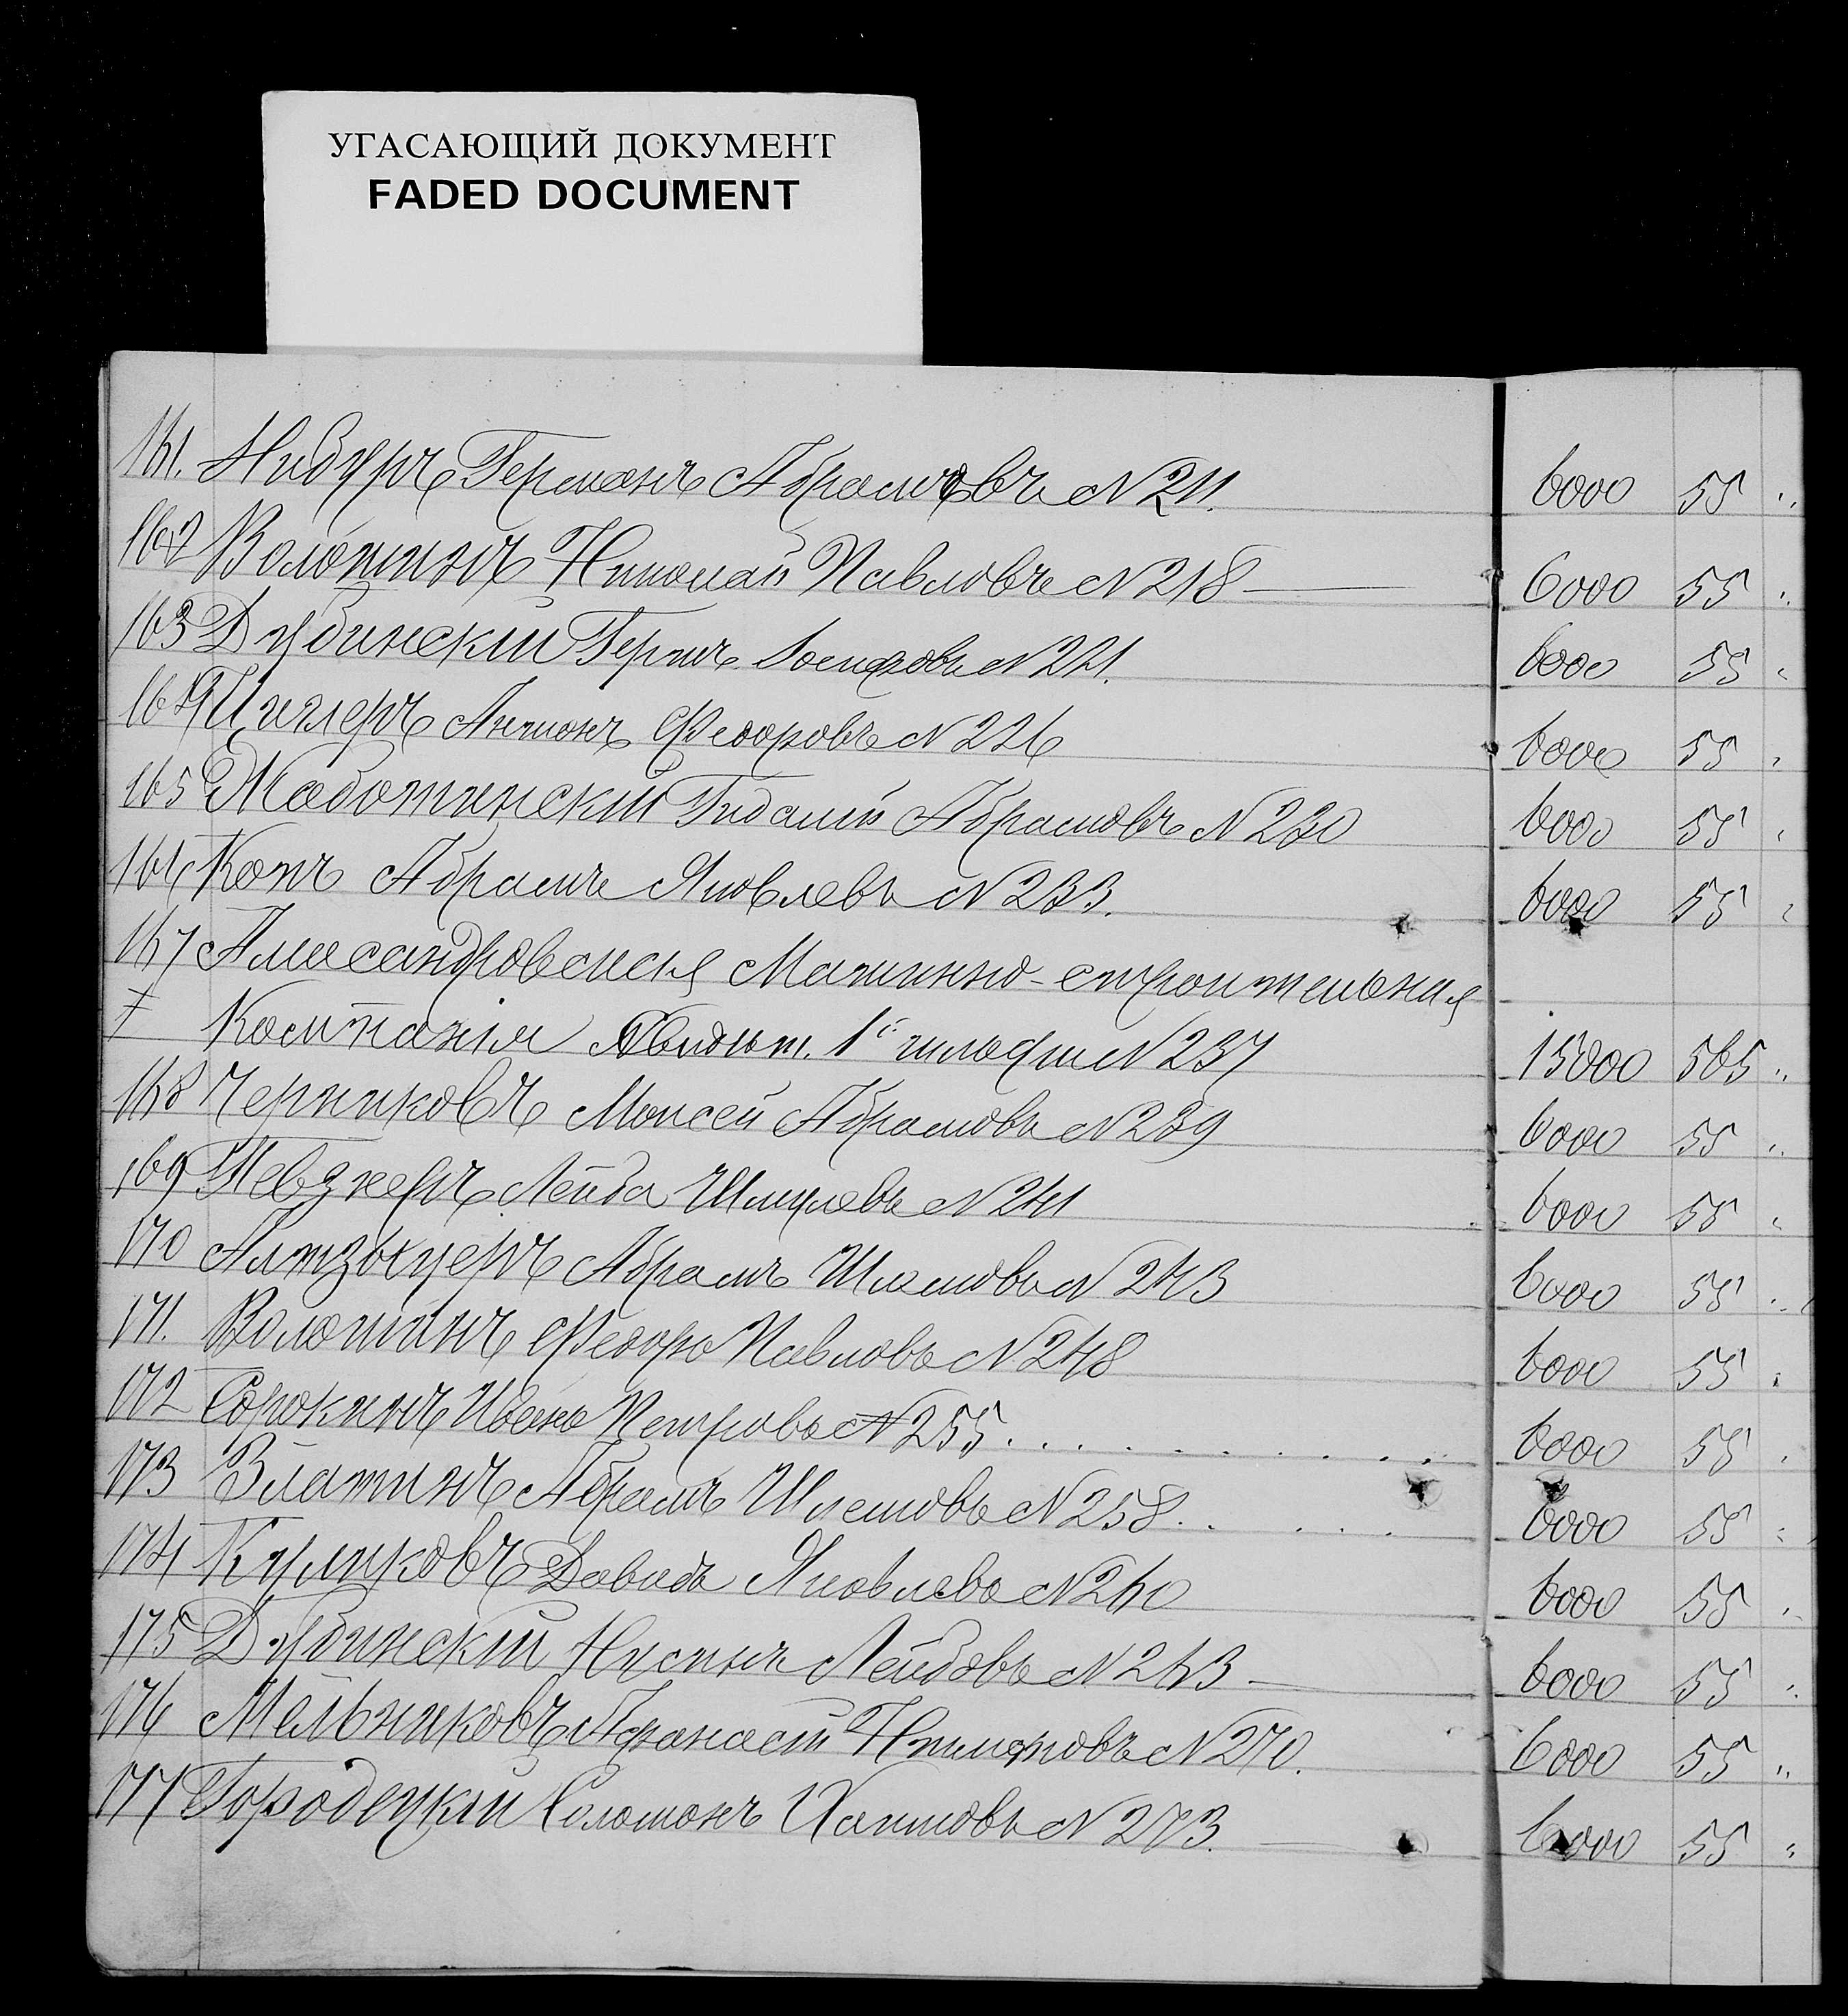 УГАСАЮЩИЙ ДОКУМЕНТ
FADED DOCUMENT
161. Нибуръ Германъ Абрамовъ N 211. 6000 55 "
162 Волотинъ Николай Павловъ N 218 — 6000 55 "
163 Дубинскій Гершъ Іосифовъ N 221. 6000 55 "
164 Циглеръ Антонъ Федоровъ N 226 6000 55 "
165 Жаботинскій Гидалій Абрамовъ N 230 6000 55 "
166 Канъ Абрамъ Яковлевъ N 233. 6000 55 "
167 Александровская Машинно-строительная
Компанія 1й гильдіи N 237 15000 565 "
168 Черниковъ Моисей Абрамовъ N 239 6000 55 "
169 Певзнеръ Лейба Шмулевъ N 241 6000 55 "
170 Альтзицеръ Абрамъ Шлемовъ N 243 6000 55 "
171. Волотинъ Федоръ Павловъ N 248 6000 55 "
172 Сорокинъ Иванъ Петровъ N 255 . . . . . . . . . 6000 55 "
173 Златинъ Абрамъ Шлемовъ N 258 . . . . . 6000 55 "
174 Куликовъ Давидъ Яковлевъ N 260 6000 55 "
175 Дубинскій Нусинъ Лейбовъ N 263 — 6000 55 "
176 Мельниковъ Афанасій N 270. 6000 55 "
177 Городецкій Соломонъ Хаимовъ N 273. — 6000 55 "